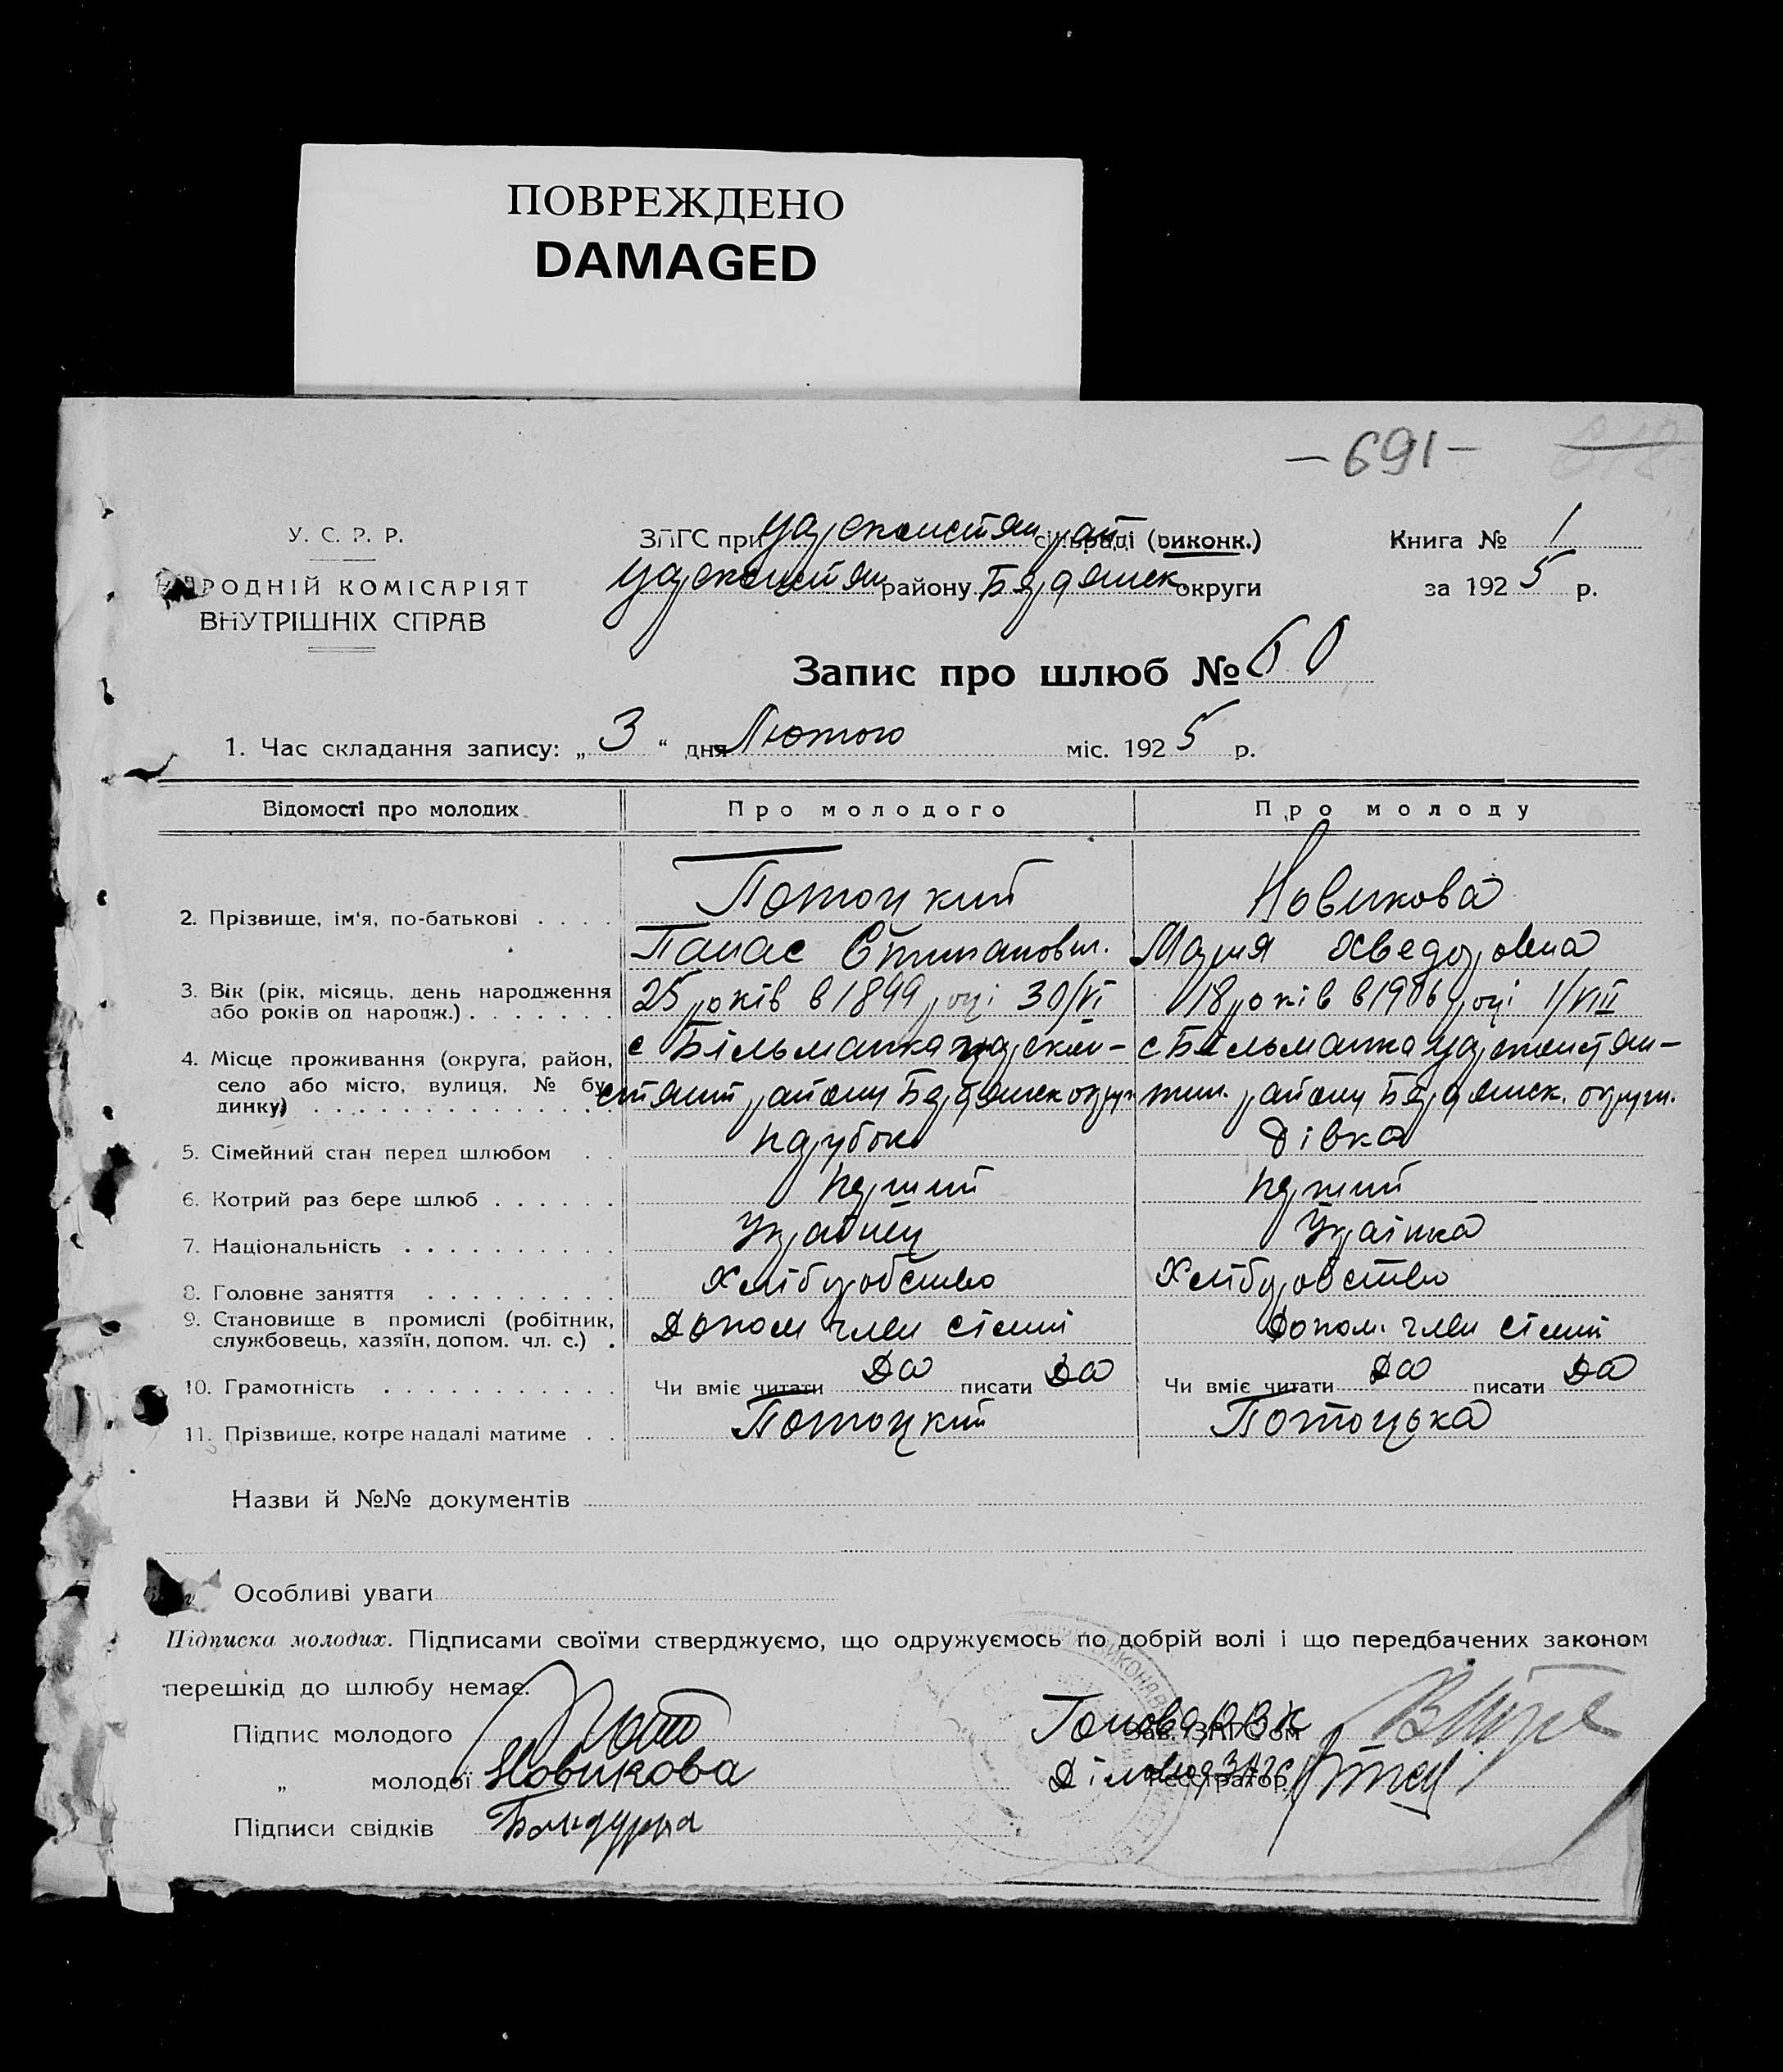 ПОВРЕЖДЕНО
DAMAGED
— 691 —
У. С. Р. Р.
РОДНІЙ КОМІСАРІЯТ
ВНУТРІШНІХ СПРАВ
ЗПГС при Цареконстян рай. сільраді (виконк.)
Цареконстян району Бердянськ округи
Книга № 1
за 1925 р.
Запис про шлюб № 60
1. Час складання запису: „ 3 “ дня Лютого міс. 1925 р.
Відомості про молодих Про молодого Про молоду
2. Прізвище, ім'я, по-батькові Потоцкий Новикова
Панас Степанович. Мария Хведоровна
3. Вік (рік, місяць, день народження або років од народж.) 25 років в 1899 році 30/VI 18 років в 1906 році 1/VIII
4. Місце проживання (округа, район, с Більманка Царекон- с Більманка Цареконстян-
село або місто, вулиця, № бу-
динку) стяний району Бердянськ округи району Бердянськ. округи.
5. Сімейний стан перед шлюбом парубок дівка
6. Котрий раз бере шлюб перший перший
7. Національність Українец Українка
8. Головне заняття Хліборобство Хліборобство
9. Становище в промислі (робітник,
службовець, хазяїн, допом. чл. с.) Допом член сіемії Допом. член сіемії
10. Грамотність Чи вміє читати Да писати Да Чи вміє читати Да писати Да
11. Прізвище, котре надалі матиме Потоцкий Потоцька
Назви й №№ документів
Особливі уваги
Підписка молодих. Підписами своїми стверджуємо, що одружуємось по добрій волі і що передбачених законом
перешкід до шлюбу немає.
Підпис молодого Зав. ЗАГС'ом Голова РВК
„ молодої Новикова Реєстратор Діловод ЗАГС
Підписи свідків Бондурра